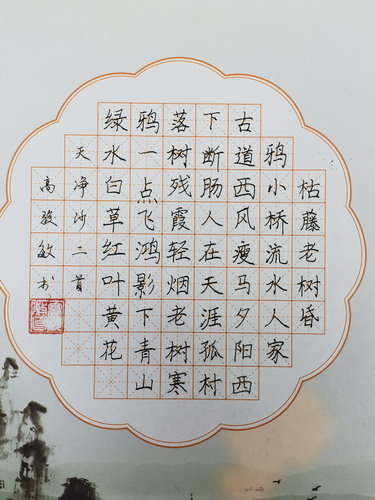 枯藤老树昏
鸦小桥流水人家
古道西风瘦马夕阳西
下断肠人在天涯孤村
落树残霞轻烟老树寒
鸦一点飞鸿影下青山
绿水白草红叶黄花
天净沙二首
高敏书